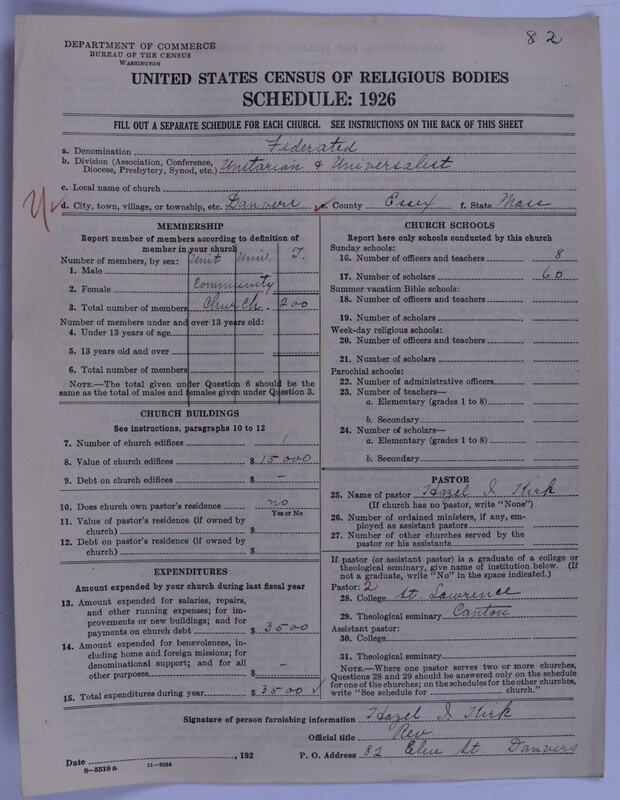 82
DEPARTMENT OF COMMERCE
BUREAU OF THE CENSUS
WASHINGTON
UNITED STATES CENSUS OF RELIGIOUS BODIES
SCHEDULE: 1926
FILL OUT A SEPARATE SCHEDULE FOR EACH CHURCH. SEE INSTRUCTIONS ON THE BACK OF THIS SHEET
a. Denomination Federated
b. Division (Association, Conference,
Diocese, Presbytery, Synod, etc.) Unitarian & Universalist
c. Local name of church
d. City, town, village, or township, etc. Danvers e. County Essex f. State Mass
MEMBERSHIP
Report number of members according to definition of
member in your church
Number of members, by sex: Unit Univ. T.
1. Male
2. Female Community
3. Total number of members Church. 200
Number of members under and over 13 years old:
4. Under 13 years of age
5. 13 years old and over
6. Total number of members
NOTE.—The total given under Question 6 should be the
same as the total of males and females given under Question 3.
CHURCH BUILDINGS
See instructions, paragraphs 10 to 12
7. Number of church edifices 1
8. Value of church edifices $ 15000
9. Debt on church edifices $ —
10. Does church own pastor's residence? no
Yes or No
11. Value of pastor's residence (if owned by
church) $
12. Debt on pastor's residence (if owned by
church) $
EXPENDITURES
Amount expended by your church during last fiscal year
13. Amount expended for salaries, repairs,
and other running expenses; for im-
provements or new buildings; and for
payments on church debt $ 3500
14. Amount expended for benevolences, in-
cluding home and foreign missions; for
denominational support; and for all
other purposes $ —
15. Total expenditures during year $ 3500
CHURCH SCHOOLS
Report here only schools conducted by this church
Sunday schools:
16. Number of officers and teachers 8
17. Number of scholars 60
Summer vacation Bible schools:
18. Number of officers and teachers
19. Number of scholars
Week-day religious schools:
20. Number of officers and teachers
21. Number of scholars
Parochial schools:
22. Number of administrative officers
23. Number of teachers—
a. Elementary (grades 1 to 8)
b. Secondary
24. Number of scholars—
a. Elementary (grades 1 to 8)
b. Secondary
PASTOR
25. Name of pastor Hazel I Kirk
(If church has no pastor, write "None")
26. Number of ordained ministers, if any, em-
ployed as assistant pastors
27. Number of other churches served by the
pastor or his assistants
If pastor (or assistant pastor) is a graduate of a college or
theological seminary, give name of institution below. (If
not a graduate, write "No" in the space indicated.)
Pastor: 2
28. College St. Lawrence
29. Theological seminary Canton
Assistant pastor:
30. College
31. Theological seminary
NOTE.—Where one pastor serves two or more churches,
Questions 28 and 29 should be answered only on the schedule
for one of the churches; on the schedules for the other churches,
write "See schedule for church."
Signature of person furnishing information Hazel I Kirk
Official title Rev
Date , 192 P. O. Address 82 Elm St. Danvers
8-5518 a 11-9034